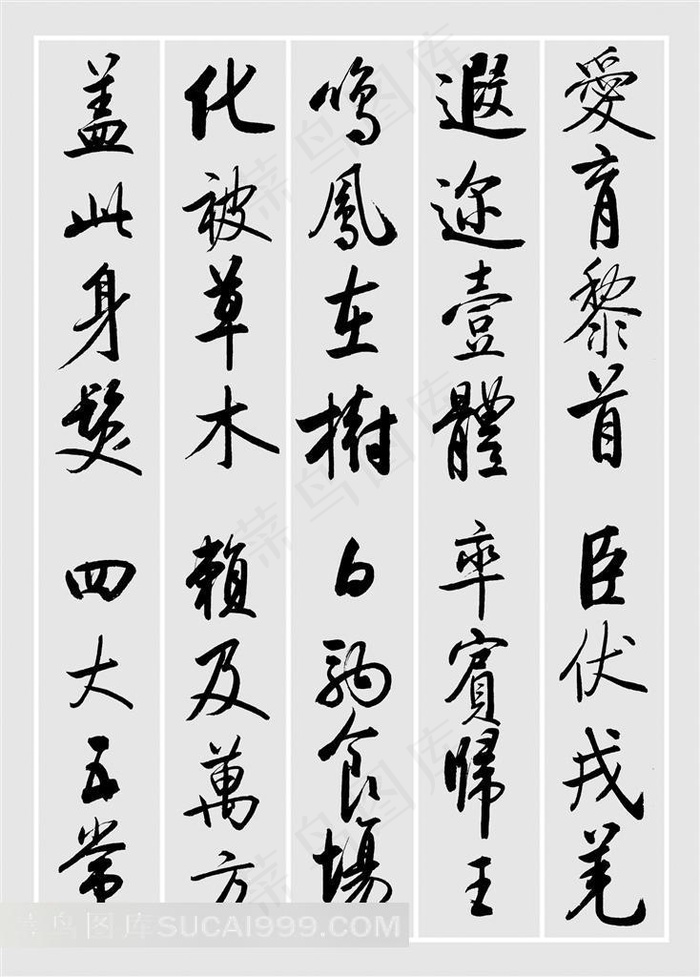 愛育黎首 臣伏戎羌
遐迩壹體 率賓歸王
鳴鳳在樹 白駒食場
化被草木 賴及萬方
蓋此身髮 四大五常
菜鸟图库 SUCAI999.COM